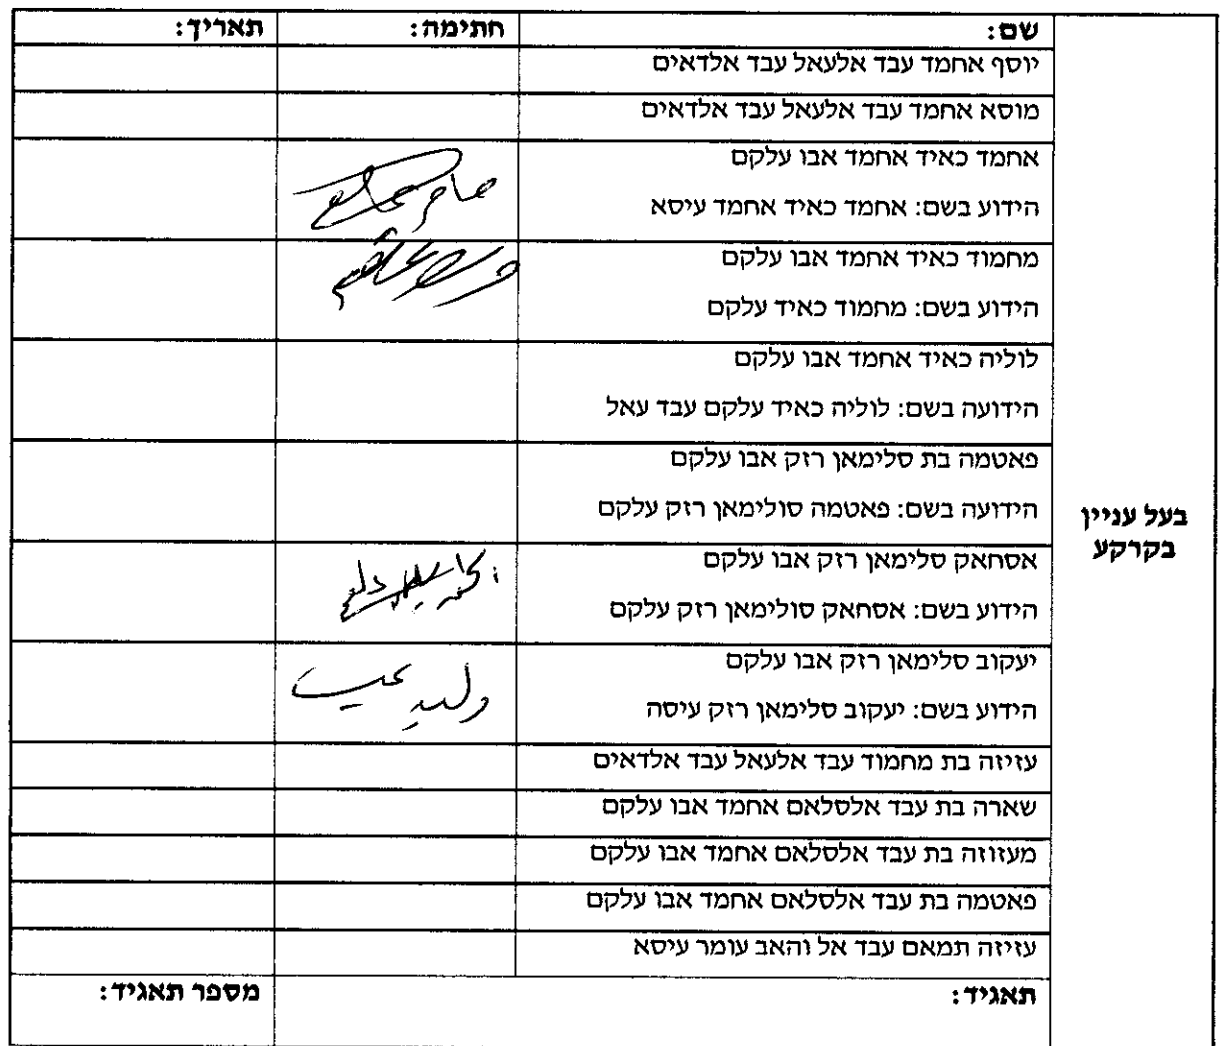 שם: חתימה: תאריך:
יוסף אחמד עבד אלעאל עבד אלדאים
מוסא אחמד עבד אלעאל עבד אלדאים
אחמד כאיד אחמד אבו עלקם
הידוע בשם: אחמד כאיד אחמד עיסא
מחמוד כאיד אחמד אבו עלקם
הידוע בשם: מחמוד כאיד עלקם
לוליה כאיד אחמד אבו עלקם
הידועה בשם: לוליה כאיד עלקם עבד עאל
פאטמה בת סלימאן רזק אבו עלקם
הידועה בשם: פאטמה סולימאן רזק עלקם
בעל עניין
בקרקע
אסחאק סלימאן רזק אבו עלקם
הידוע בשם: אסחאק סולימאן רזק עלקם
יעקוב סלימאן רזק אבו עלקם
הידוע בשם: יעקוב סלימאן רזק עיסה
עזיזה בת מחמוד עבד אלעאל עבד אלדאים
שארה בת עבד אלסלאם אחמד אבו עלקם
מעזוזה בת עבד אלסלאם אחמד אבו עלקם
פאטמה בת עבד אלסלאם אחמד אבו עלקם
עזיזה תמאם עבד אל והאב עומר עיסא
תאגיד: מספר תאגיד: